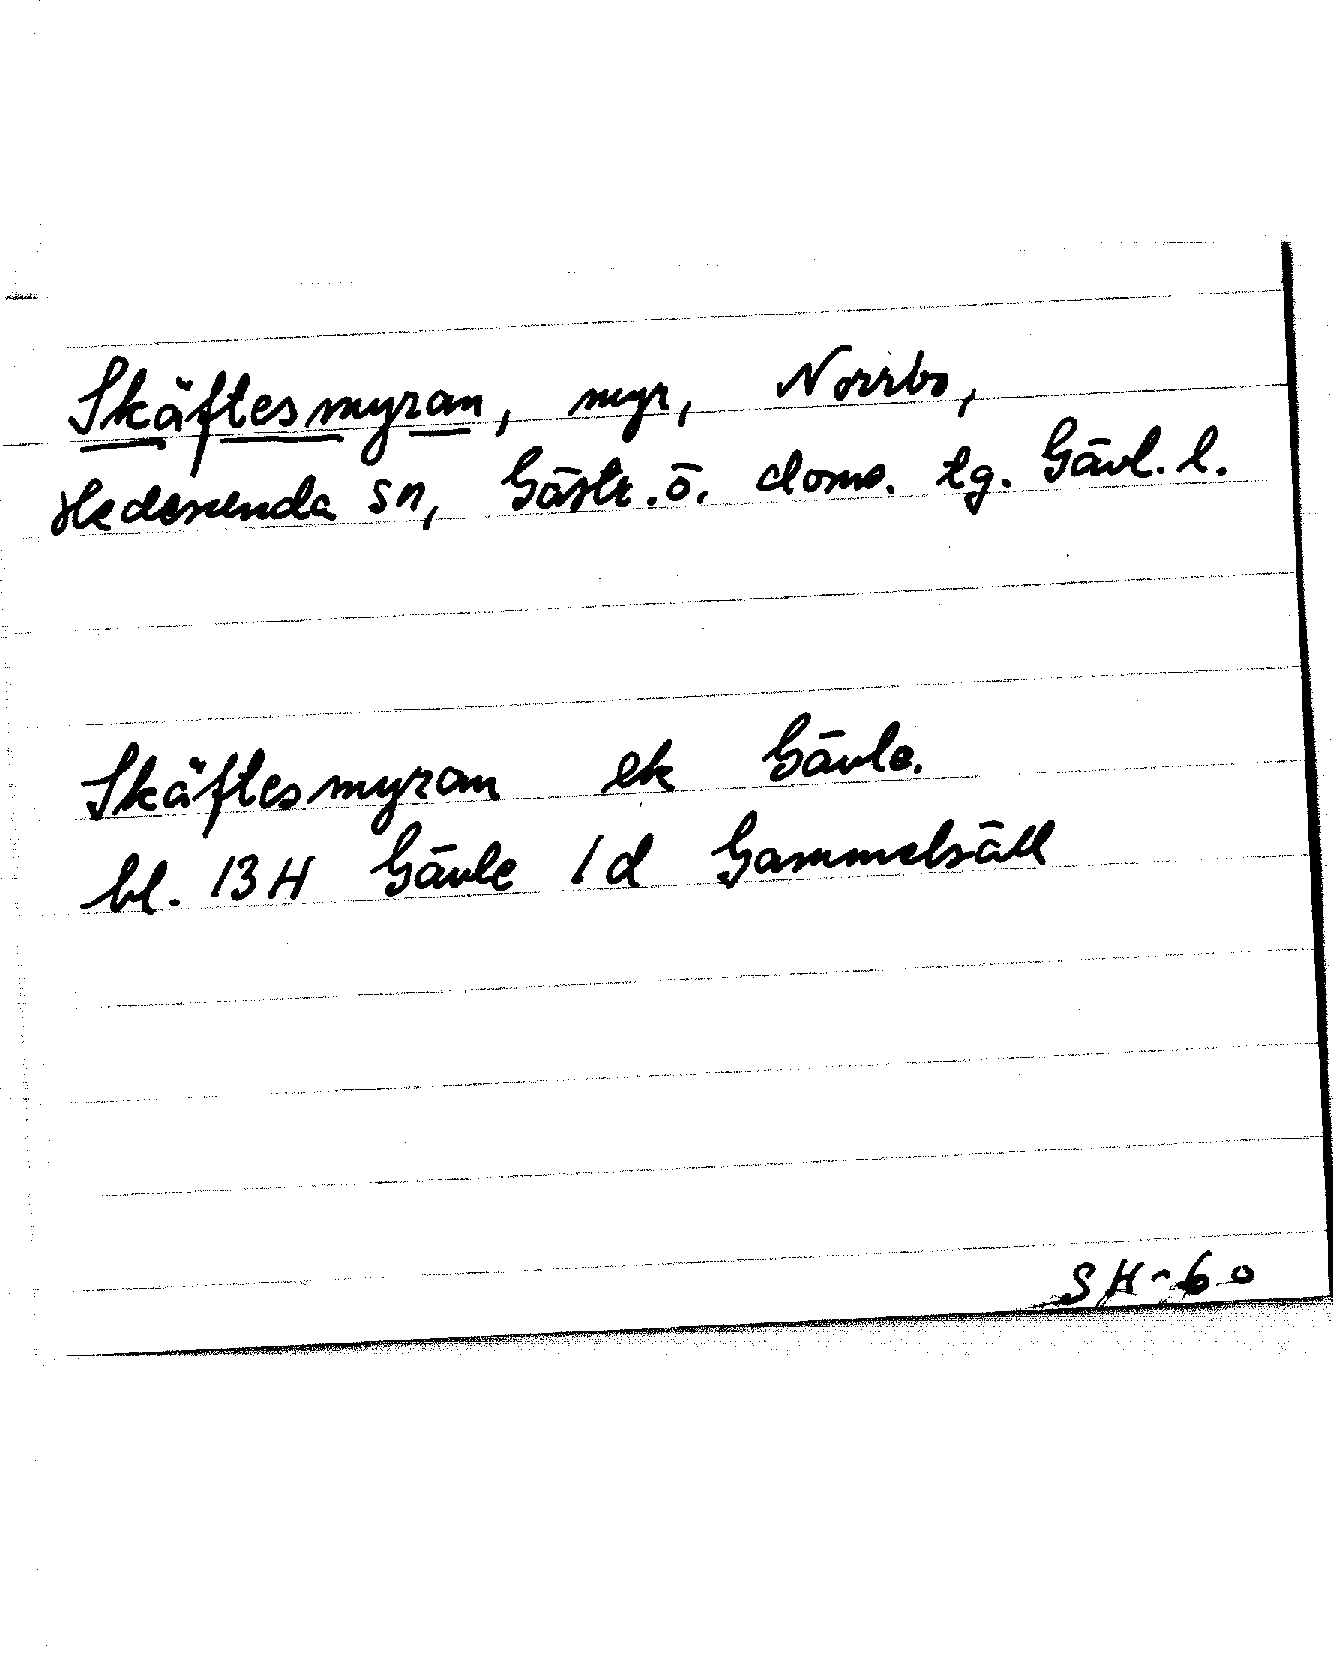 Skäftesmyran, myr, Norrbo,
Hedesunda sn, Gästr. ö. doms. tg. Gävl. l.
Skäftesmyran ek Gävle.
bl. 13H Gävle 1d Gammelsäll
SH-60